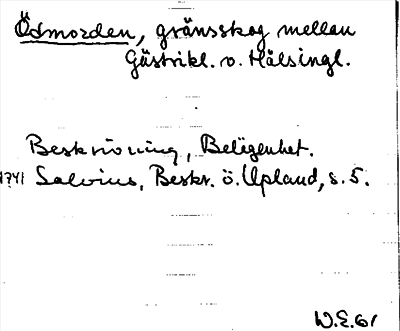 Ödmorden, gränsskog mellan
Gästrikl. o. Hälsingl.
Beskrivning, Belägenhet.
1741 Salvius, Beskr. ö. Upland, s. 5.
W.E. 61